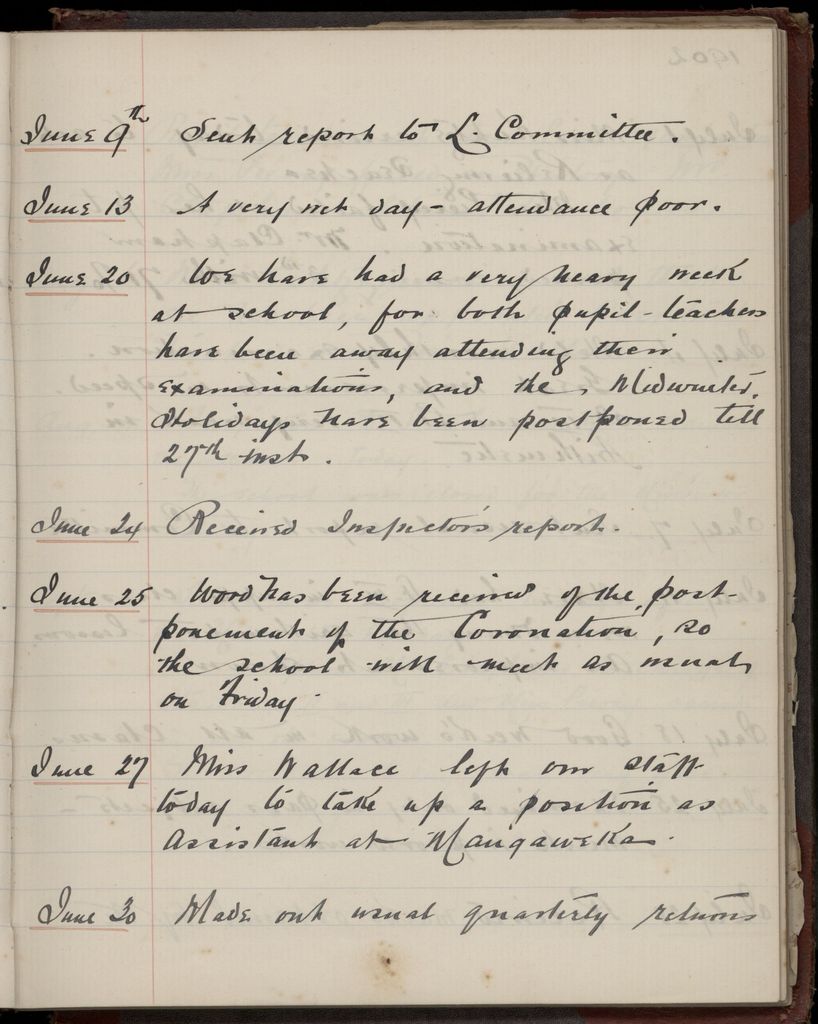 June 9th Sent report to L. Committee.
June 13 A very wet day - attendance poor.
June 20 We have had a very heavy week
at school, for both pupil-teachers
have been away attending their
examinations, and the Midwinter
Holidays have been postponed till
27th inst.
June 24 Received Inspector's report.
June 25 Word has been received of the post-
ponement of the Coronation, so
the school will meet as usual
on Friday.
June 27 Miss Wallace left our staff
today to take up a position as
Assistant at Mangaweka.
June 30 Made out usual quarterly returns